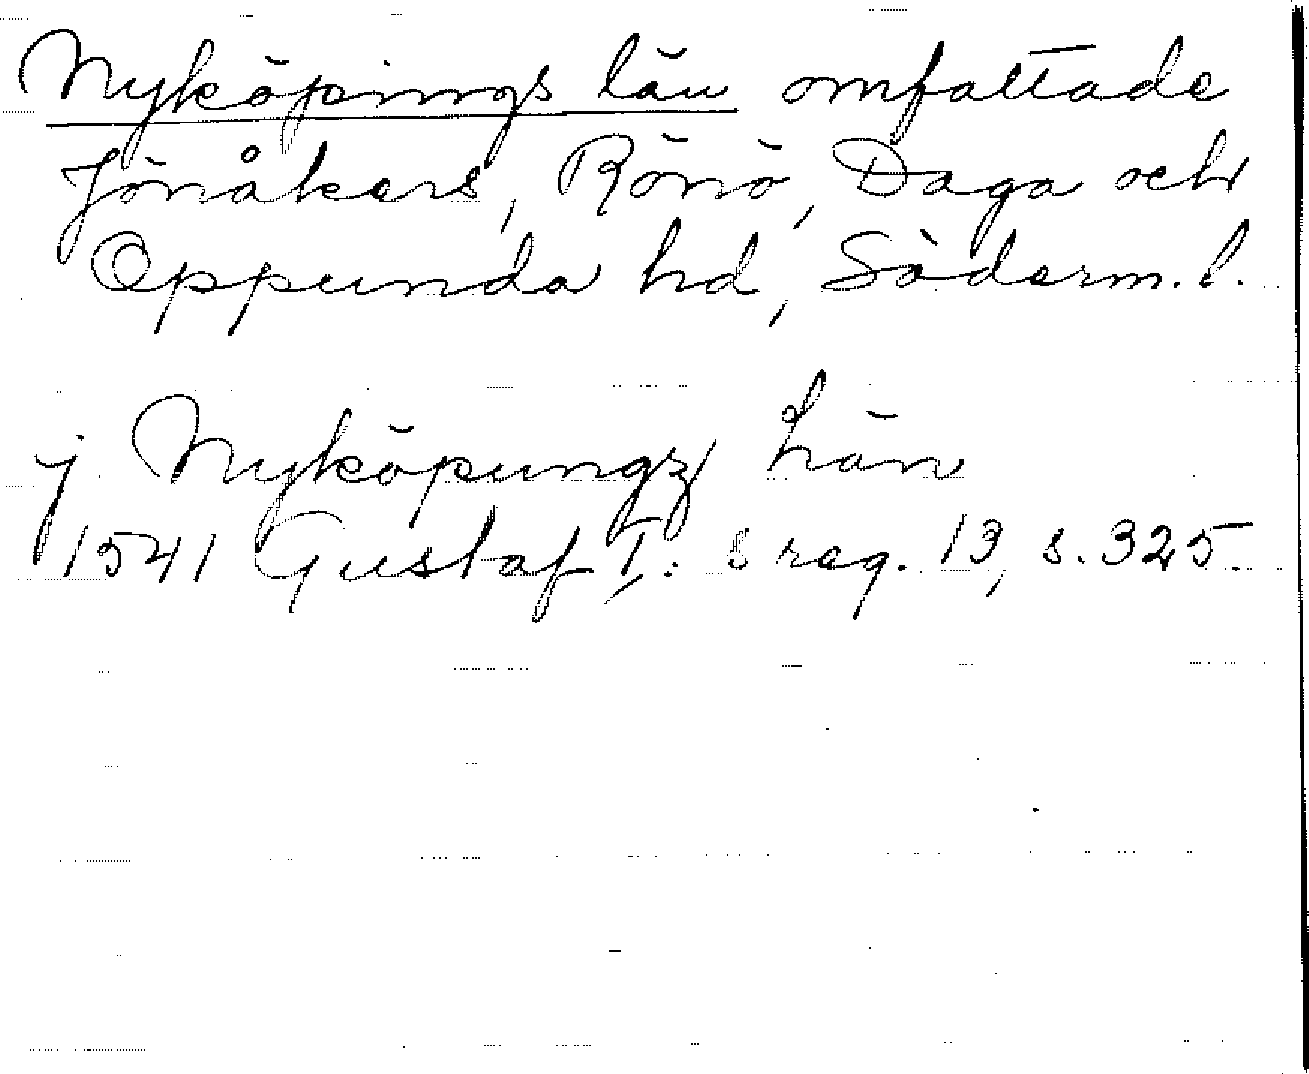 Nyköpings län omfattade
Jönåkers, Rönö, Daga och
Oppunda hd, Söderm. l.
j Nyköpungz Län
1541 Gustaf I:s reg. 13, s. 325.